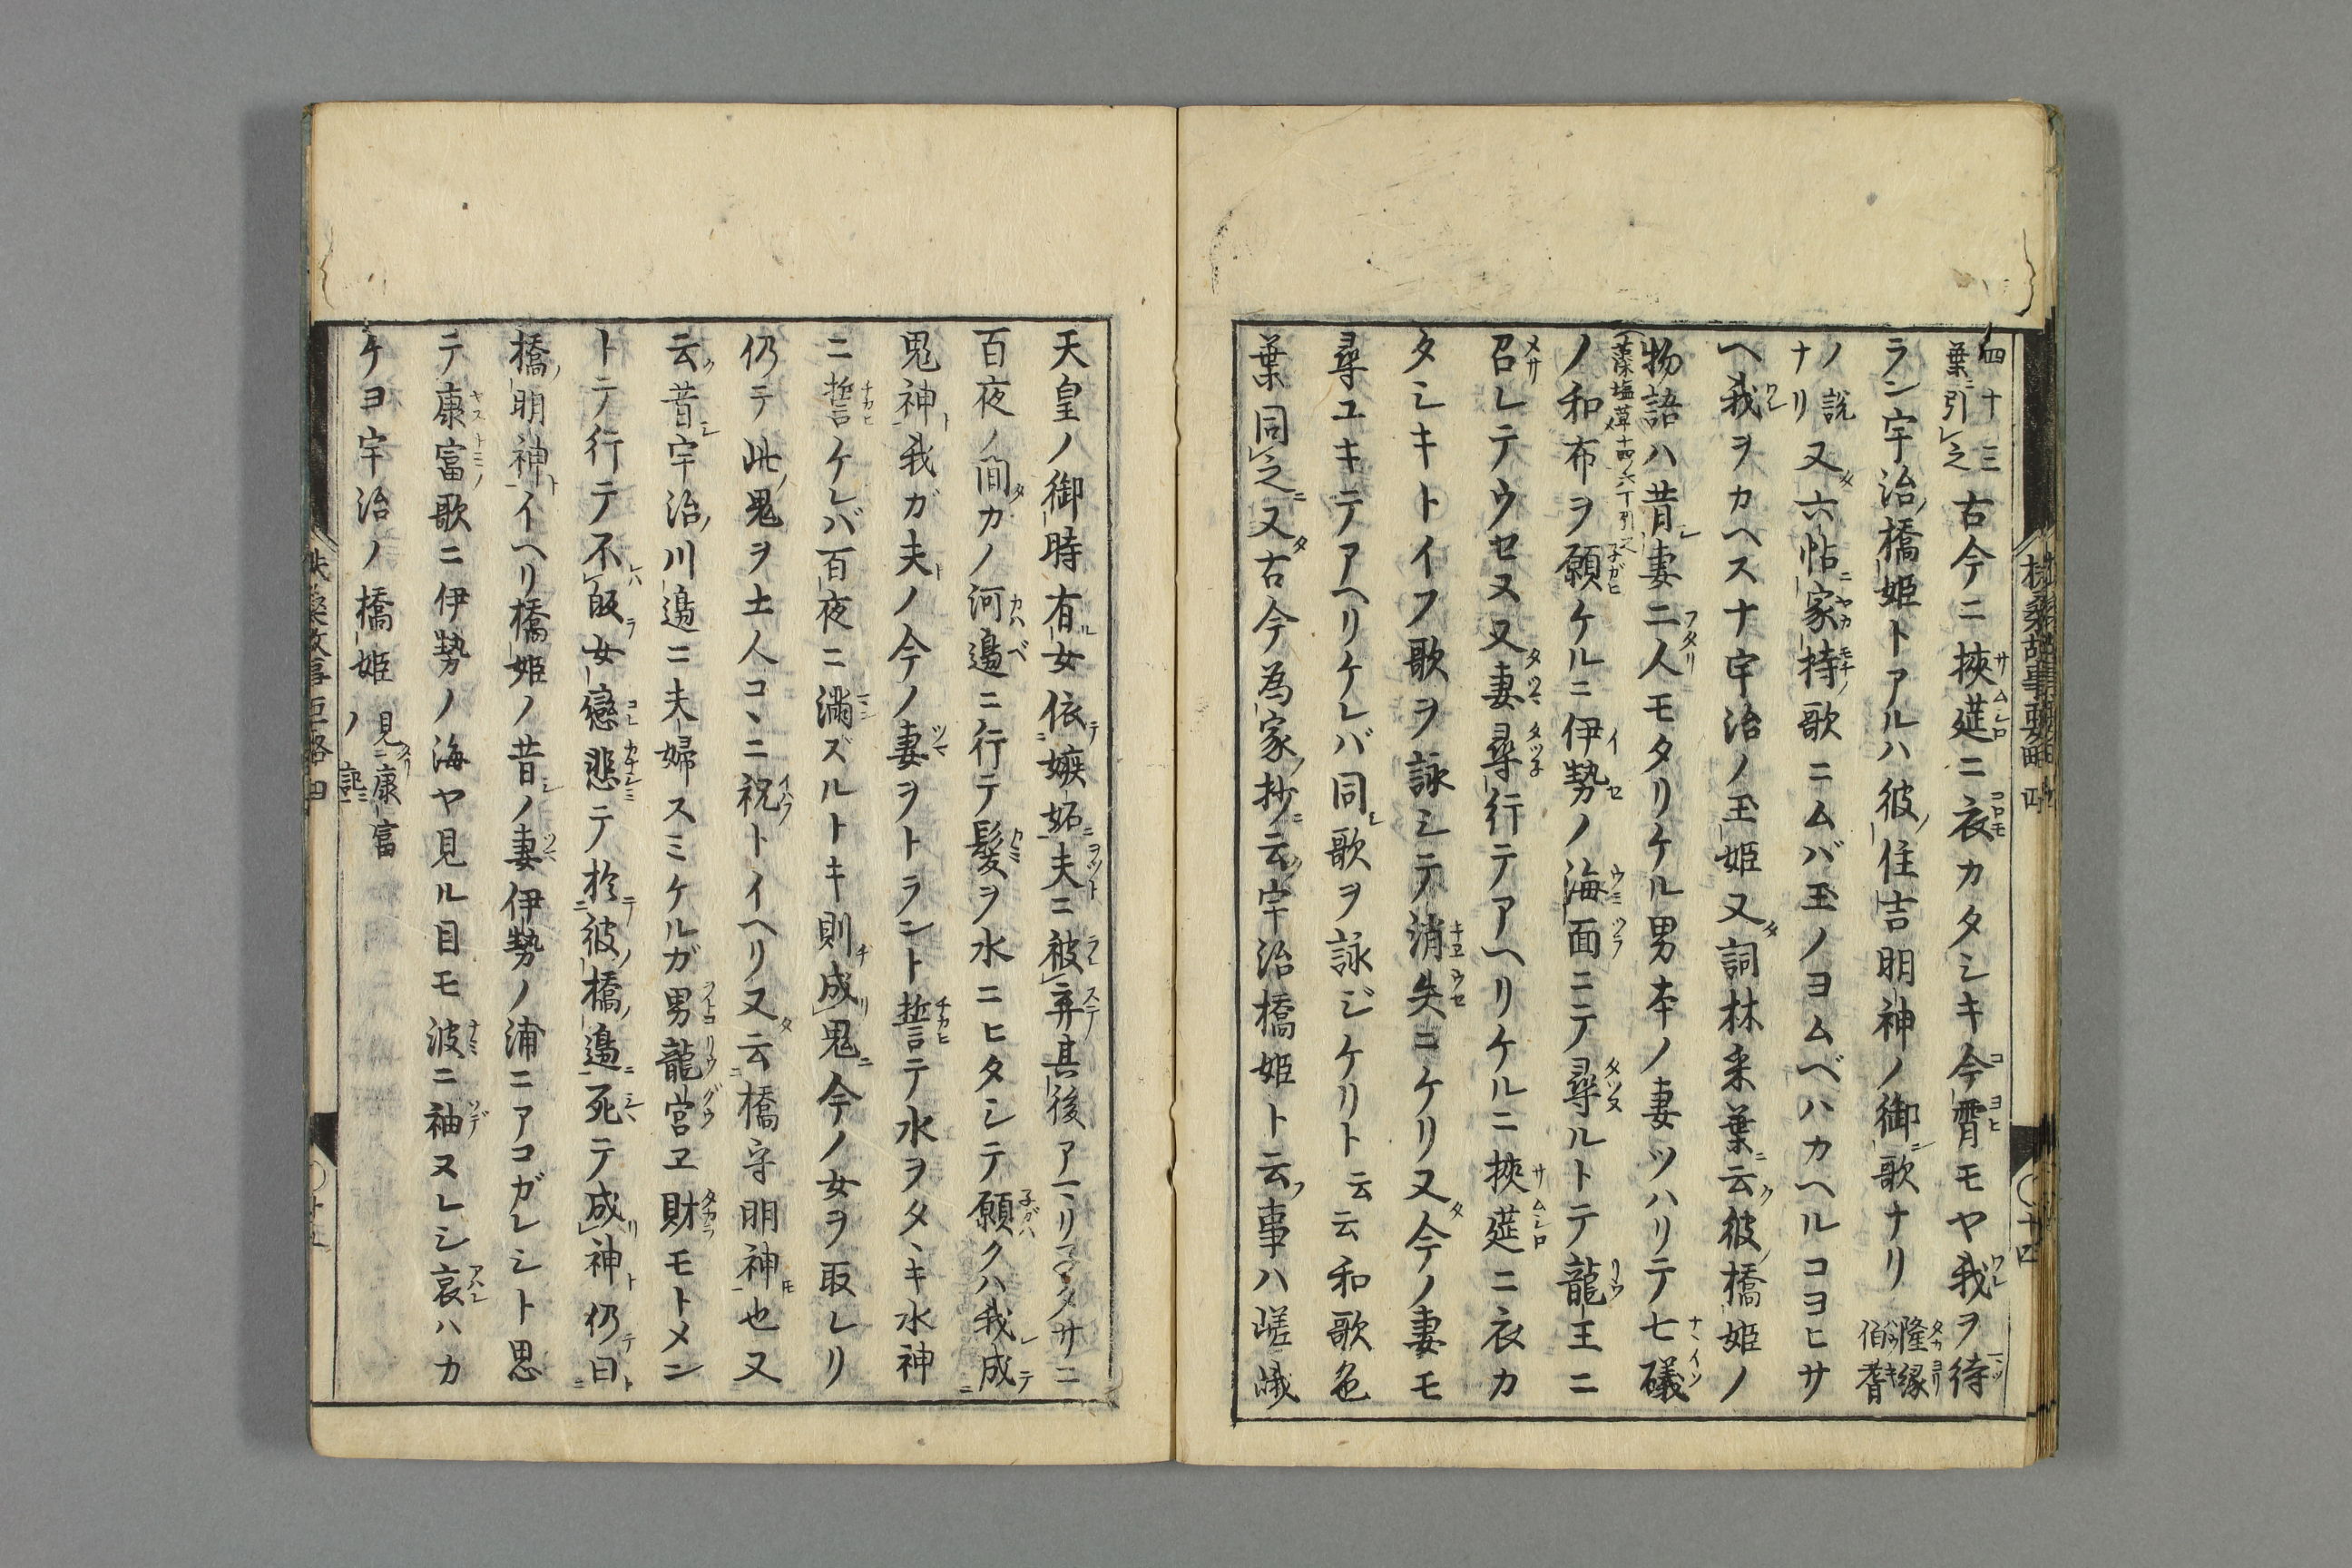 四十三
葉ニ引之 古今ニ挾莚ニ衣カタシキ今宵モヤ我ヲ待
ラン宇治橋姫トアルハ彼住吉明神ノ御歌ナリ 隆縁伯耆
ノ説
ナリ 又六帖家持歌ニムバ玉ノヨムベハカヘルコヨヒサ
ヘ我ヲカヘスナ宇治ノ玉姫又詞林采葉云彼橋姫ノ
物語ハ昔妻二人モタリケル男本ノ妻ツハリテ七礒
藻塩草十四ノ六丁引之
ノ和布ヲ願ケルニ伊勢ノ海面ニテ尋ルトテ龍王ニ
召レテウセヌ又妻尋行テアヘリケルニ挾莚ニ衣カ
タシキトイフ歌ヲ詠シテ消失ニケリ又今ノ妻モ
尋ユキテアヘリケレバ同歌ヲ詠ジケリト云云和歌色
葉同之又古今為家抄云宇治橋姫ト云事ハ嵯峨
天皇ノ御時有女依嫉妬夫ニ被弃其後アヽリ サニ
百夜ノ間カノ河邉ニ行テ髪ヲ水ニヒタシテ願クハ我成
鬼神我ガ夫ノ今ノ妻ヲトラント誓テ水ヲタヽキ水神
ニ誓ケレバ百夜ニ滿ズルトキ則成鬼今ノ女ヲ取レリ
仍テ此鬼ヲ土人コヽニ祝トイヘリ又云橋守明神也又
云昔宇治川邉ニ夫婦スミケルガ男龍宮ヱ財モトメン
トテ行テ不皈女戀悲テ於彼橋邉死テ成神仍曰
橋明神イヘリ橋姫ノ昔ノ妻伊勢ノ浦ニアコガレシト思
テ康富歌ニ伊勢ノ海ヤ見ル目モ波ニ袖ヌレシ哀ハカ
ケヨ宇治ノ橋姫 見康富
ノ記